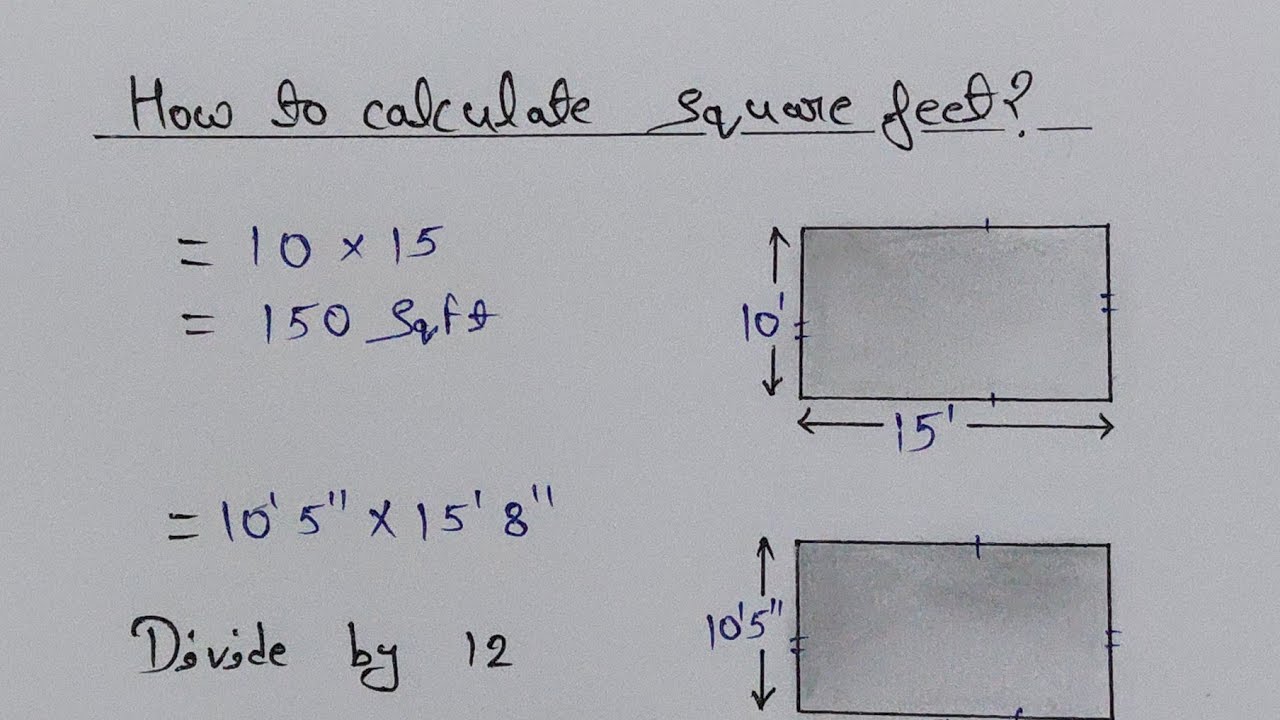 How to calculate square feet?
= 10 × 15
= 150 Sqft
10'
15'
= 10' 5" × 15' 8"
Divide by 12
10'5"